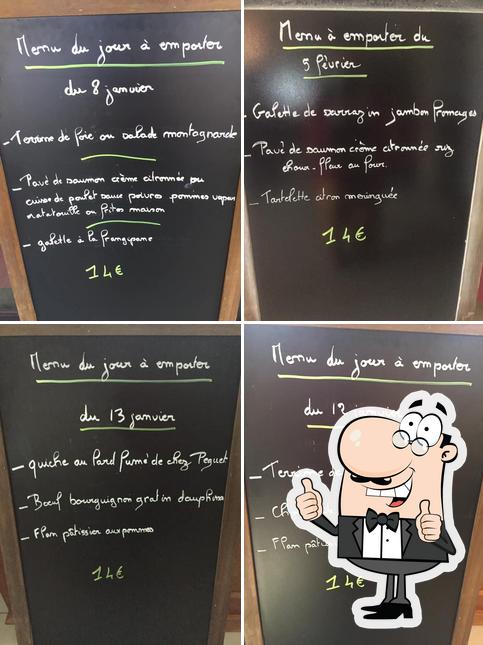 Menu du jour à emporter
du 8 janvier
_ Terrine de foie ou salade montagnarde
_ Pavé de saumon crème citronnée ou
cuisse de poulet sauce poivres pommes vapeur
ratatouille ou frites maison
_ galette à la frangipane
14€
Menu à emporter du
5 février
_ Galette de sarrazin jambon fromages
_ Pavé de saumon crème citronnée riz
choux-fleur au four.
_ Tartelette citron meringuée
14€
Menu du jour à emporter
du 13 janvier
_ quiche au lard fumé de chez Peguet
_ Bœuf bourguignon gratin dauphinois
_ Flan pâtissier aux pommes
14€
Menu du jour à emporter
du 12 janvier
_ Terrine
_ Flan
14€